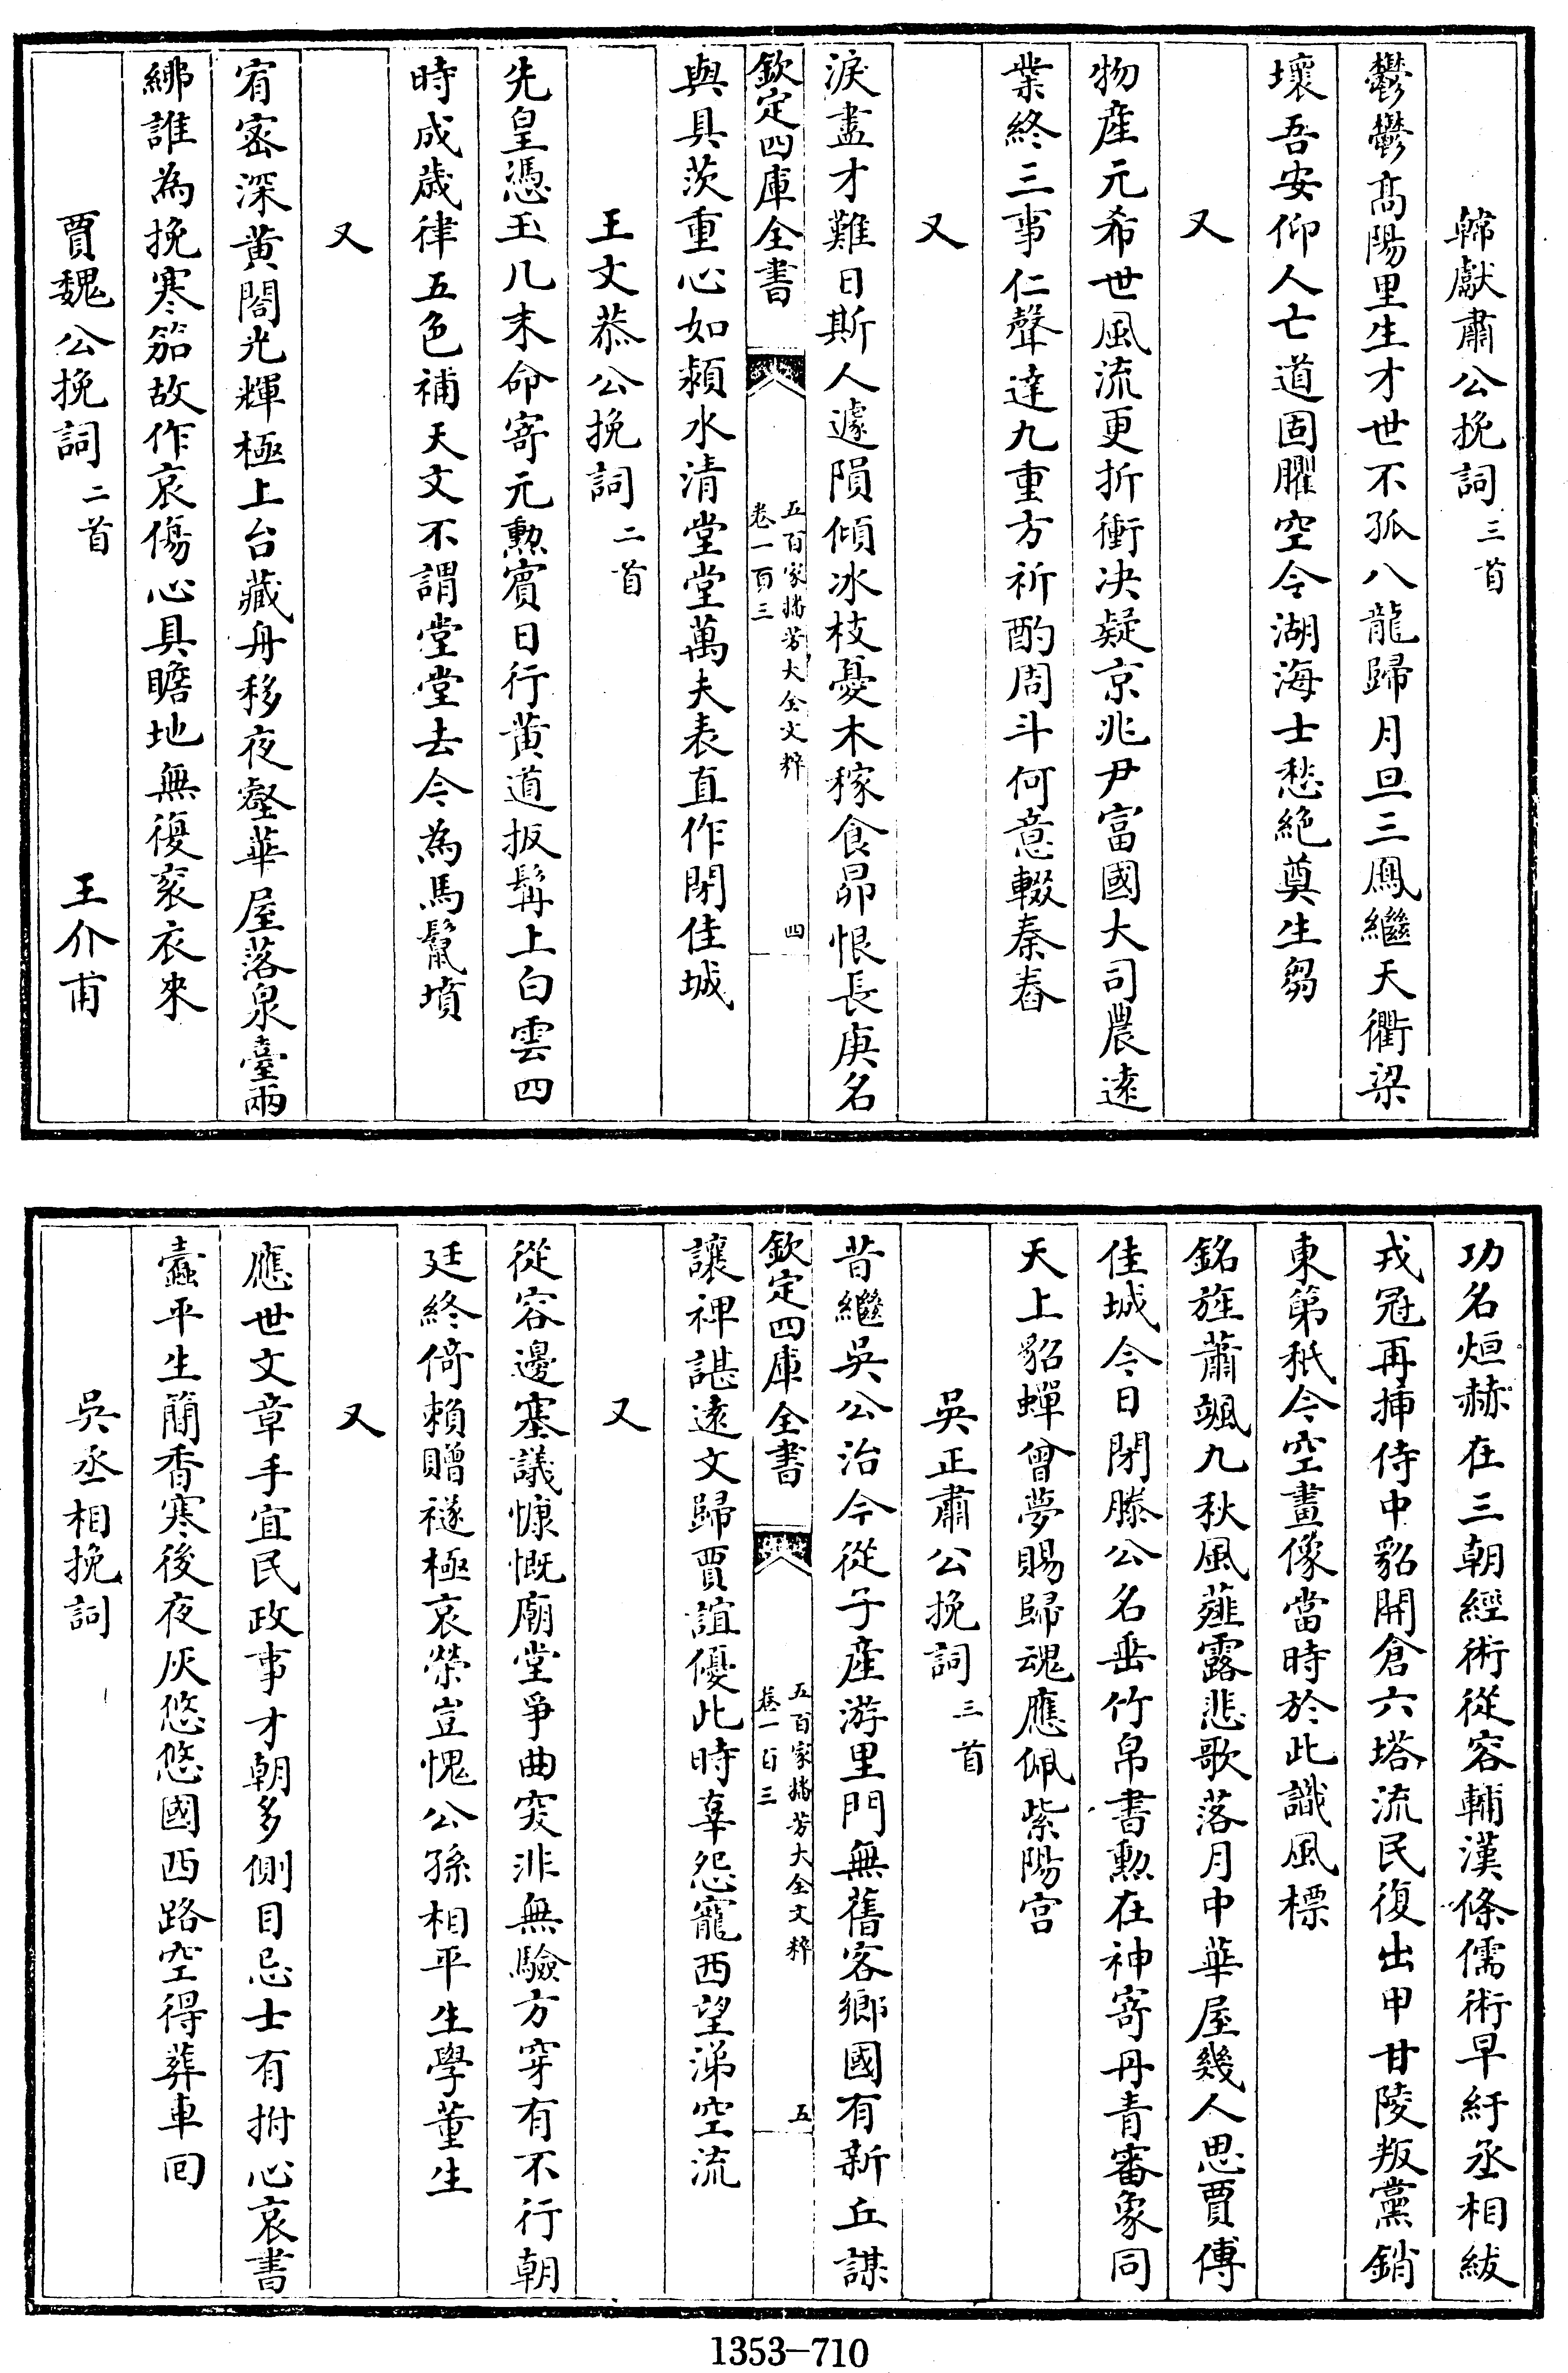 韓獻肅公挽詞三首
鬱鬱髙陽里生才世不孤八龍歸月旦三鳳繼天衢梁
壞吾安仰人亡道固臞空令湖海士愁絶奠生芻
又
物産元希世風流更折衝决疑京兆尹富國大司農逺
業終三事仁聲達九重方祈酌周斗何意輟秦舂
又
淚盡才難日斯人遽隕傾冰枝憂木稼食昴恨長庚名
欽定四庫全書
五百家播芳大全文粹
卷一百三
四
與具茨重心如潁水清堂堂萬夫表直作閉佳城
王文恭公挽詞二首
先皇憑玉几末命寄元勲賔日行黄道扳髯上白雲四
時成歳律五色補天文不謂堂堂去今為馬鬛墳
又
宥宻深黄閤光輝極上台藏舟移夜壑華屋落泉臺兩
紼誰為挽寒笳故作哀傷心具瞻地無復衮衣來
賈魏公挽詞二首
王介甫
功名烜赫在三朝經術從容輔漢條儒術早紆丞相紱
戎冠再揷侍中貂開倉六塔流民復出甲甘陵叛黨銷
東第秖今空畫像當時於此識風標
銘旌蕭颯九秋風薤露悲歌落月中華屋幾人思賈傅
佳城今日閉滕公名垂竹帛書勲在神寄丹青審象同
天上貂蟬曾夢賜歸魂應佩紫陽宫
吳正肅公挽詞三首
昔繼吳公治今從子産游里門無舊客鄉國有新丘謀
欽定四庫全書
五百家播芳大全文粹
卷一百三
五
讓禆諶逺文歸賈誼優此時辜怨寵西望涕空流
又
從容邊塞議慷慨廟堂爭曲突非無驗方穿有不行朝
廷終倚賴贈襚極哀榮豈愧公孫相平生學董生
又
應世文章手宜民政事才朝多側目忌士有拊心哀書
蠧平生簡香寒後夜灰悠悠國西路空得葬車回
吳丞相挽詞
1353-710